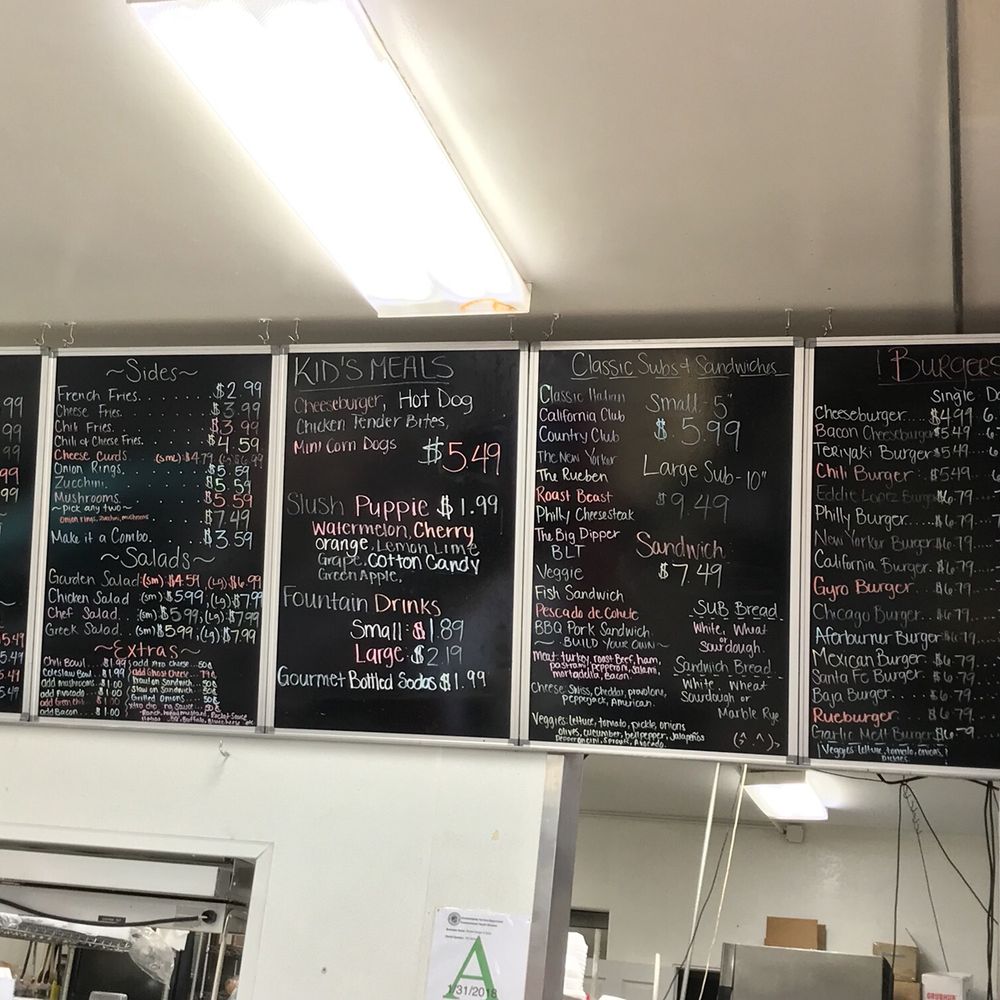 99
99
99
99
5.49
5.49
5.49
5.49
~Sides~
French Fries. $2.99
Cheese Fries. $3.99
Chili Fries. $3.99
Chili & Cheese Fries. $4.59
Cheese Curds. (sm) $4.79 (Lg) $6.99
Onion Rings. $5.59
Zucchini. $5.59
Mushrooms. $5.59
~pick any two~ $7.49
onion rings, zucchini, mushrooms
Make it a Combo. $3.59
~Salads~
Garden Salad (sm) $4.59, (Lg) $6.99
Chicken Salad (sm) $5.99, (Lg) $7.99
Chef Salad. (sm) $5.99, (Lg) $7.99
Greek Salad. (sm) $5.99, (Lg) $7.99
~Extras~
Chili Bowl. $1.99
Coleslaw Bowl. $1.99
add mushrooms $1.00
add Avocado $1.00
add Green Chili $1.00
add Bacon. $1.00
add xtra cheese 50¢
add Ghost Cheese 79¢
Slaw on Sandwich. 50¢
Grilled Onions 50¢
KID'S MEALS
Cheeseburger, Hot Dog
Chicken Tender Bites,
Mini Corn Dogs $5.49
Slush Puppie $1.99
Watermelon, Cherry
Orange, Lemon Lime
Grape, Cotton Candy
Green Apple,
Fountain Drinks
Small: $1.89
Large: $2.19
Gourmet Bottled Sodas $1.99
Classic Subs & Sandwiches
Classic Italian
California Club
Country Club
The New Yorker
The Rueben
Roast Beast
Philly Cheesesteak
The Big Dipper
BLT
Veggie
Fish Sandwich
Pescado de Cohule
BBQ Pork Sandwich
~BUILD YOUR OWN~
Meat: turkey, roast Beef, ham,
pastrami, pepperoni, salami
mortadella, bacon
Cheese: Swiss, Cheddar, provolone,
pepperjack, American.
Veggies: lettuce, tomato, pickle, onions
olives, cucumber, bell pepper, jalapeños
Pepperoncini, Sprouts, Avocado.
Small - 5"
$5.99
Large Sub - 10"
$9.49
Sandwich
$7.49
SUB Bread
White, Wheat
or
sourdough.
Sandwich Bread
White, Wheat
Sourdough or
Marble Rye
(^.^)
Burgers
Single
Cheeseburger $4.99
Bacon Cheeseburger $5.49
Teriyaki Burger $5.49
Chili Burger $5.49
Eddie Lootz Burger $6.79
Philly Burger $6.79
New Yorker Burger $6.79
California Burger. $6.79
Gyro Burger $6.79
Chicago Burger $6.79
Afterburner Burger $6.79
Mexican Burger $6.79
Santa Fe Burger $6.79
Baja Burger $6.79
Rueburger $6.79
Garlic Melt Burger $6.79
Veggies: lettuce, tomato, onions,
Pickles
A
1/31/2018